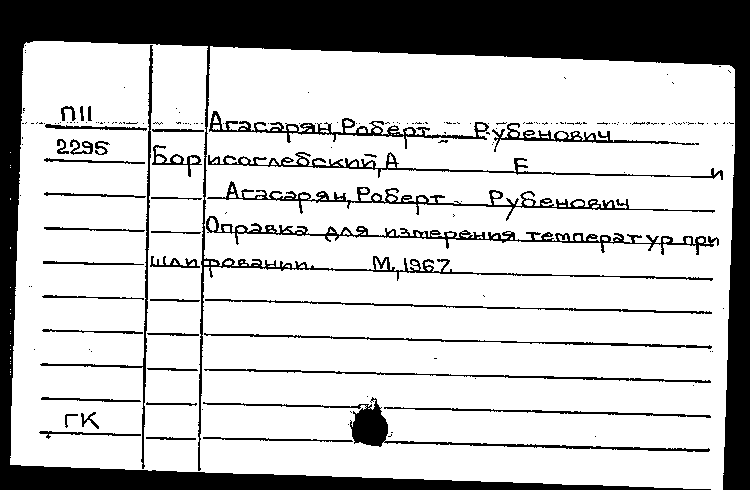 П11
Агасарян, Роберт Рубенович
2295
Борисоглебский, А Е и
Агасарян, Роберт Рубенович
Оправка для измерения температур при
шлифовании. М., 1967.
ГК